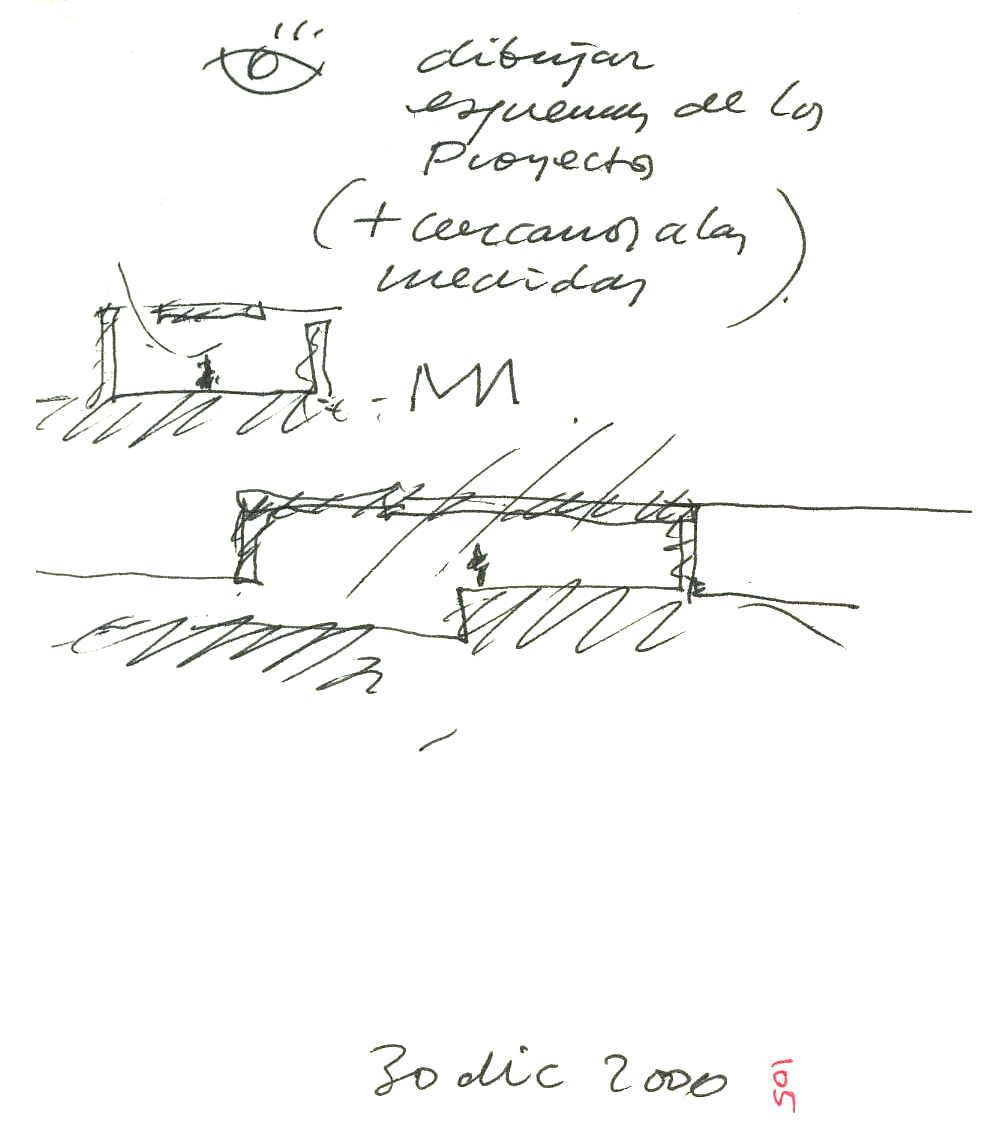 dibujar
esquemas de los
Proyectos
(+ cercanos a las
medidas)
30 dic 2000
105